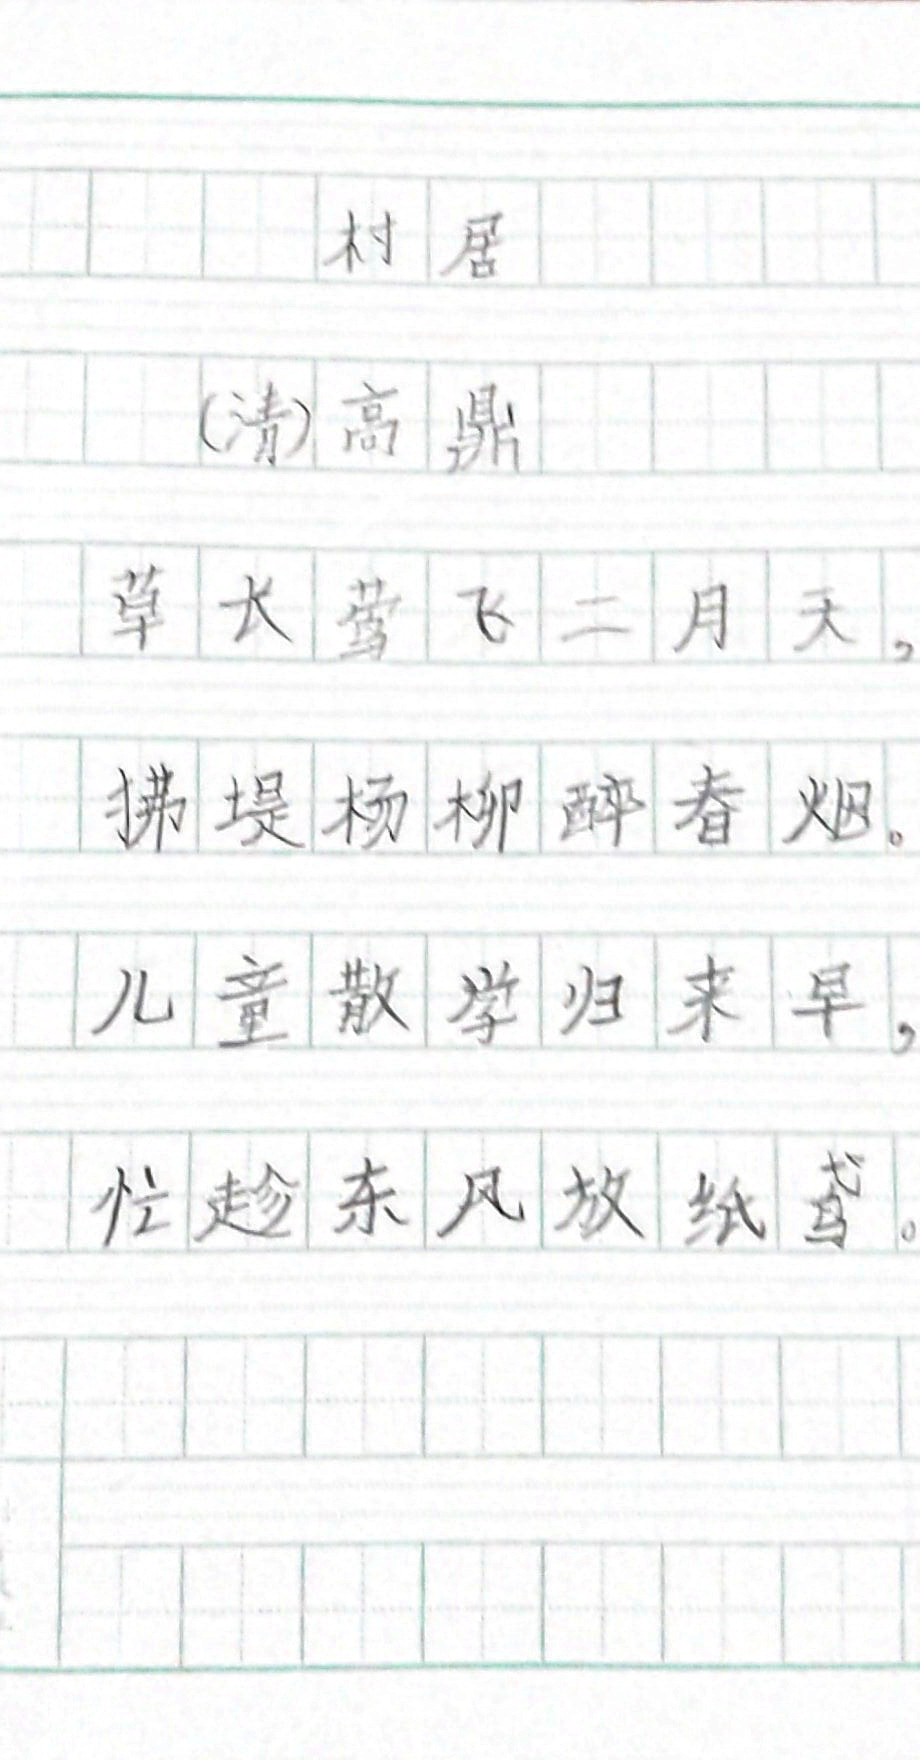 村居
(清)高鼎
草长莺飞二月天，
拂堤杨柳醉春烟。
儿童散学归来早，
忙趁东风放纸鸢。